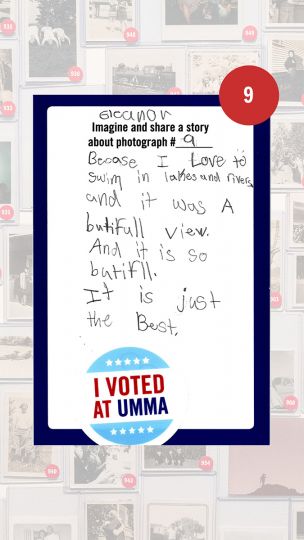 9
Eleanor
Imagine and share a story
about photograph # 9
Becase I Love to
swim in lakes and rivers
and it was A
butifull view.
And it is so
butifll.
It is just
the Best.
I VOTED
AT UMMA